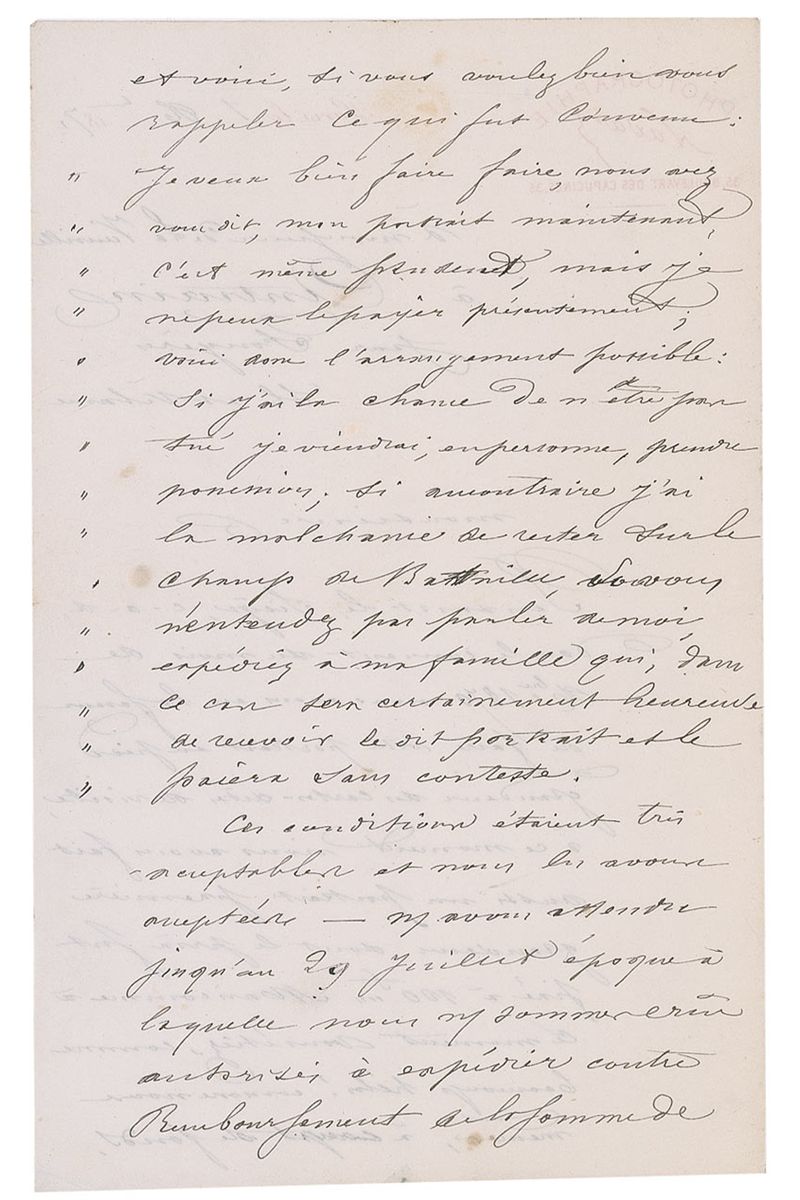 et voici, si vous voulez bien vous
rappeler ce qui fut convenu :
" Je veux bien faire faire, nous avez
" vous dit, mon portrait maintenant,
" c'est même prudent, mais je
" ne peux le payer présentement ;
" voici donc l'arrangement possible :
" Si j'ai la chance de n'être pas
" tué je viendrai, en personne, prendre
" possession ; si au contraire j'ai
" la malchance de rester sur le
" champ de Bataille, vous
" n'entendez pas parler de moi,
" expédiez à ma famille qui, dans
" ce cas sera certainement heureuse
" de recevoir le dit portrait et le
" paièra sans conteste.
Ces conditions étaient très
acceptables et nous les avons
acceptées — ns avons attendu
jusqu'au 29 Juillet époque à
laquelle nous ns sommes crûs
autorisés à expédier contre
Remboursement de la somme de
PHOTOGRAPHIE
35 BOULEVART DES CAPUCINES 35